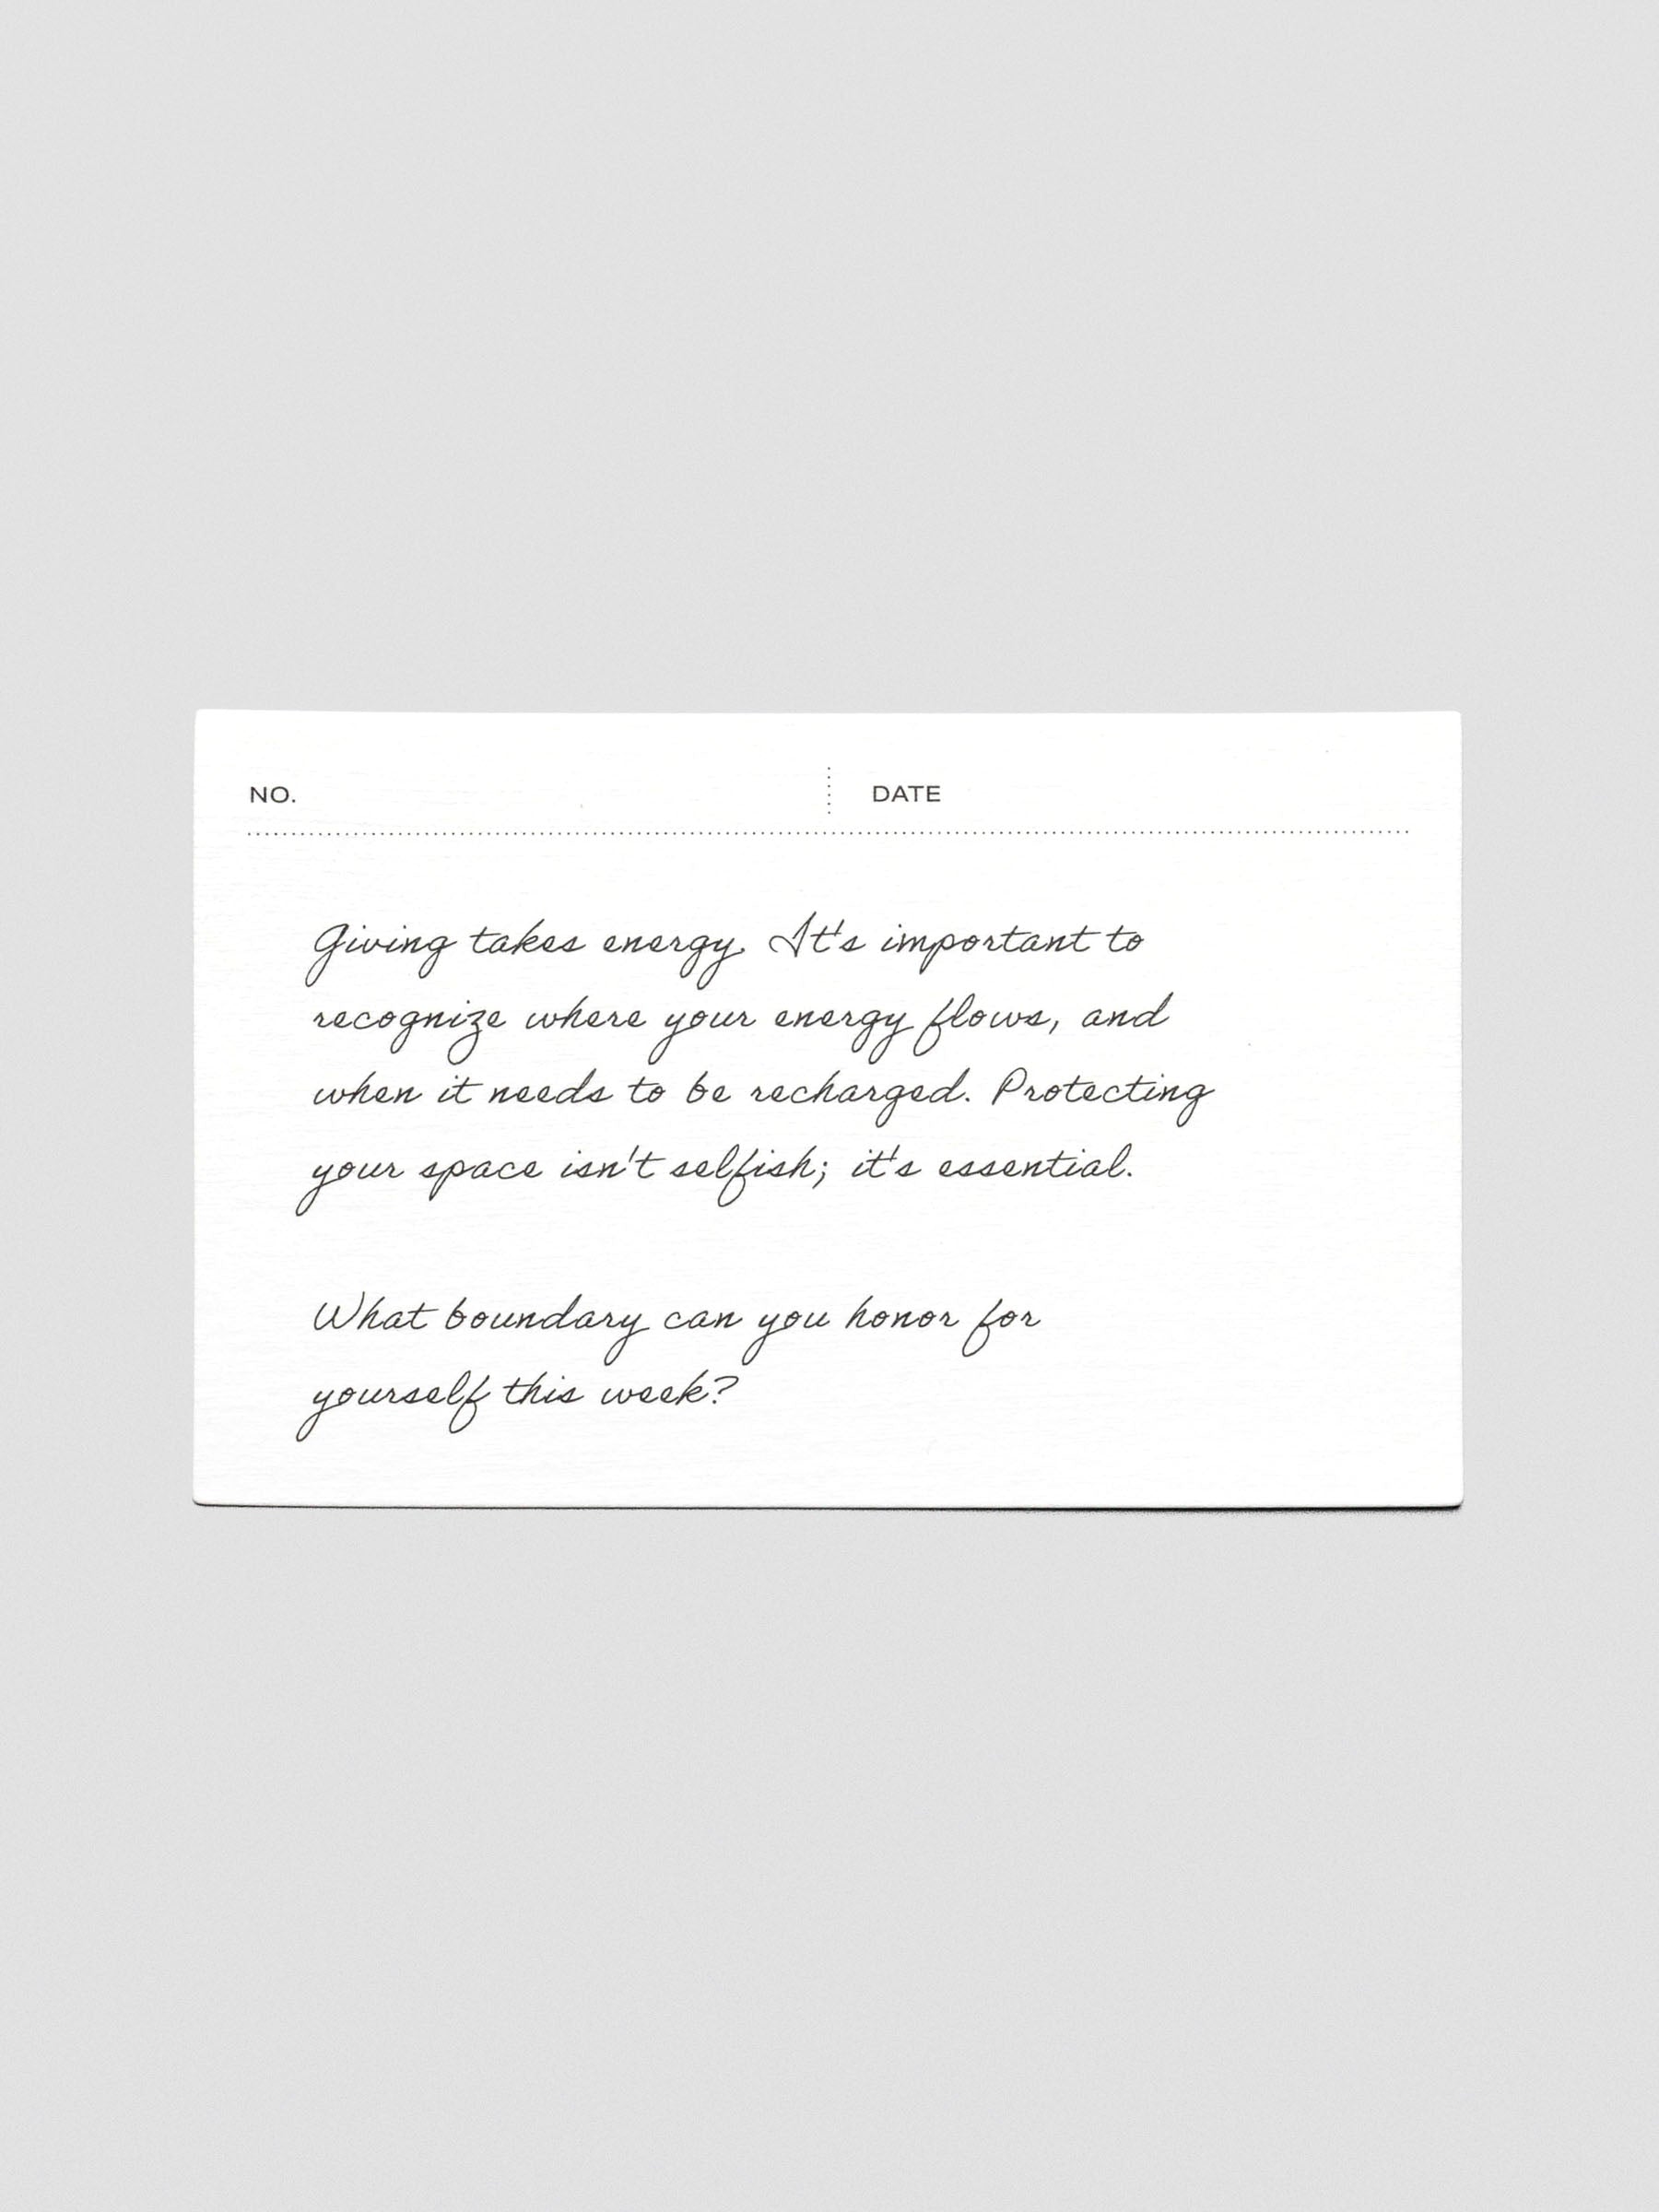 NO. DATE
Giving takes energy. It's important to
recognize where your energy flows, and
when it needs to be recharged. Protecting
your space isn't selfish; it's essential.
What boundary can you honor for
yourself this week?